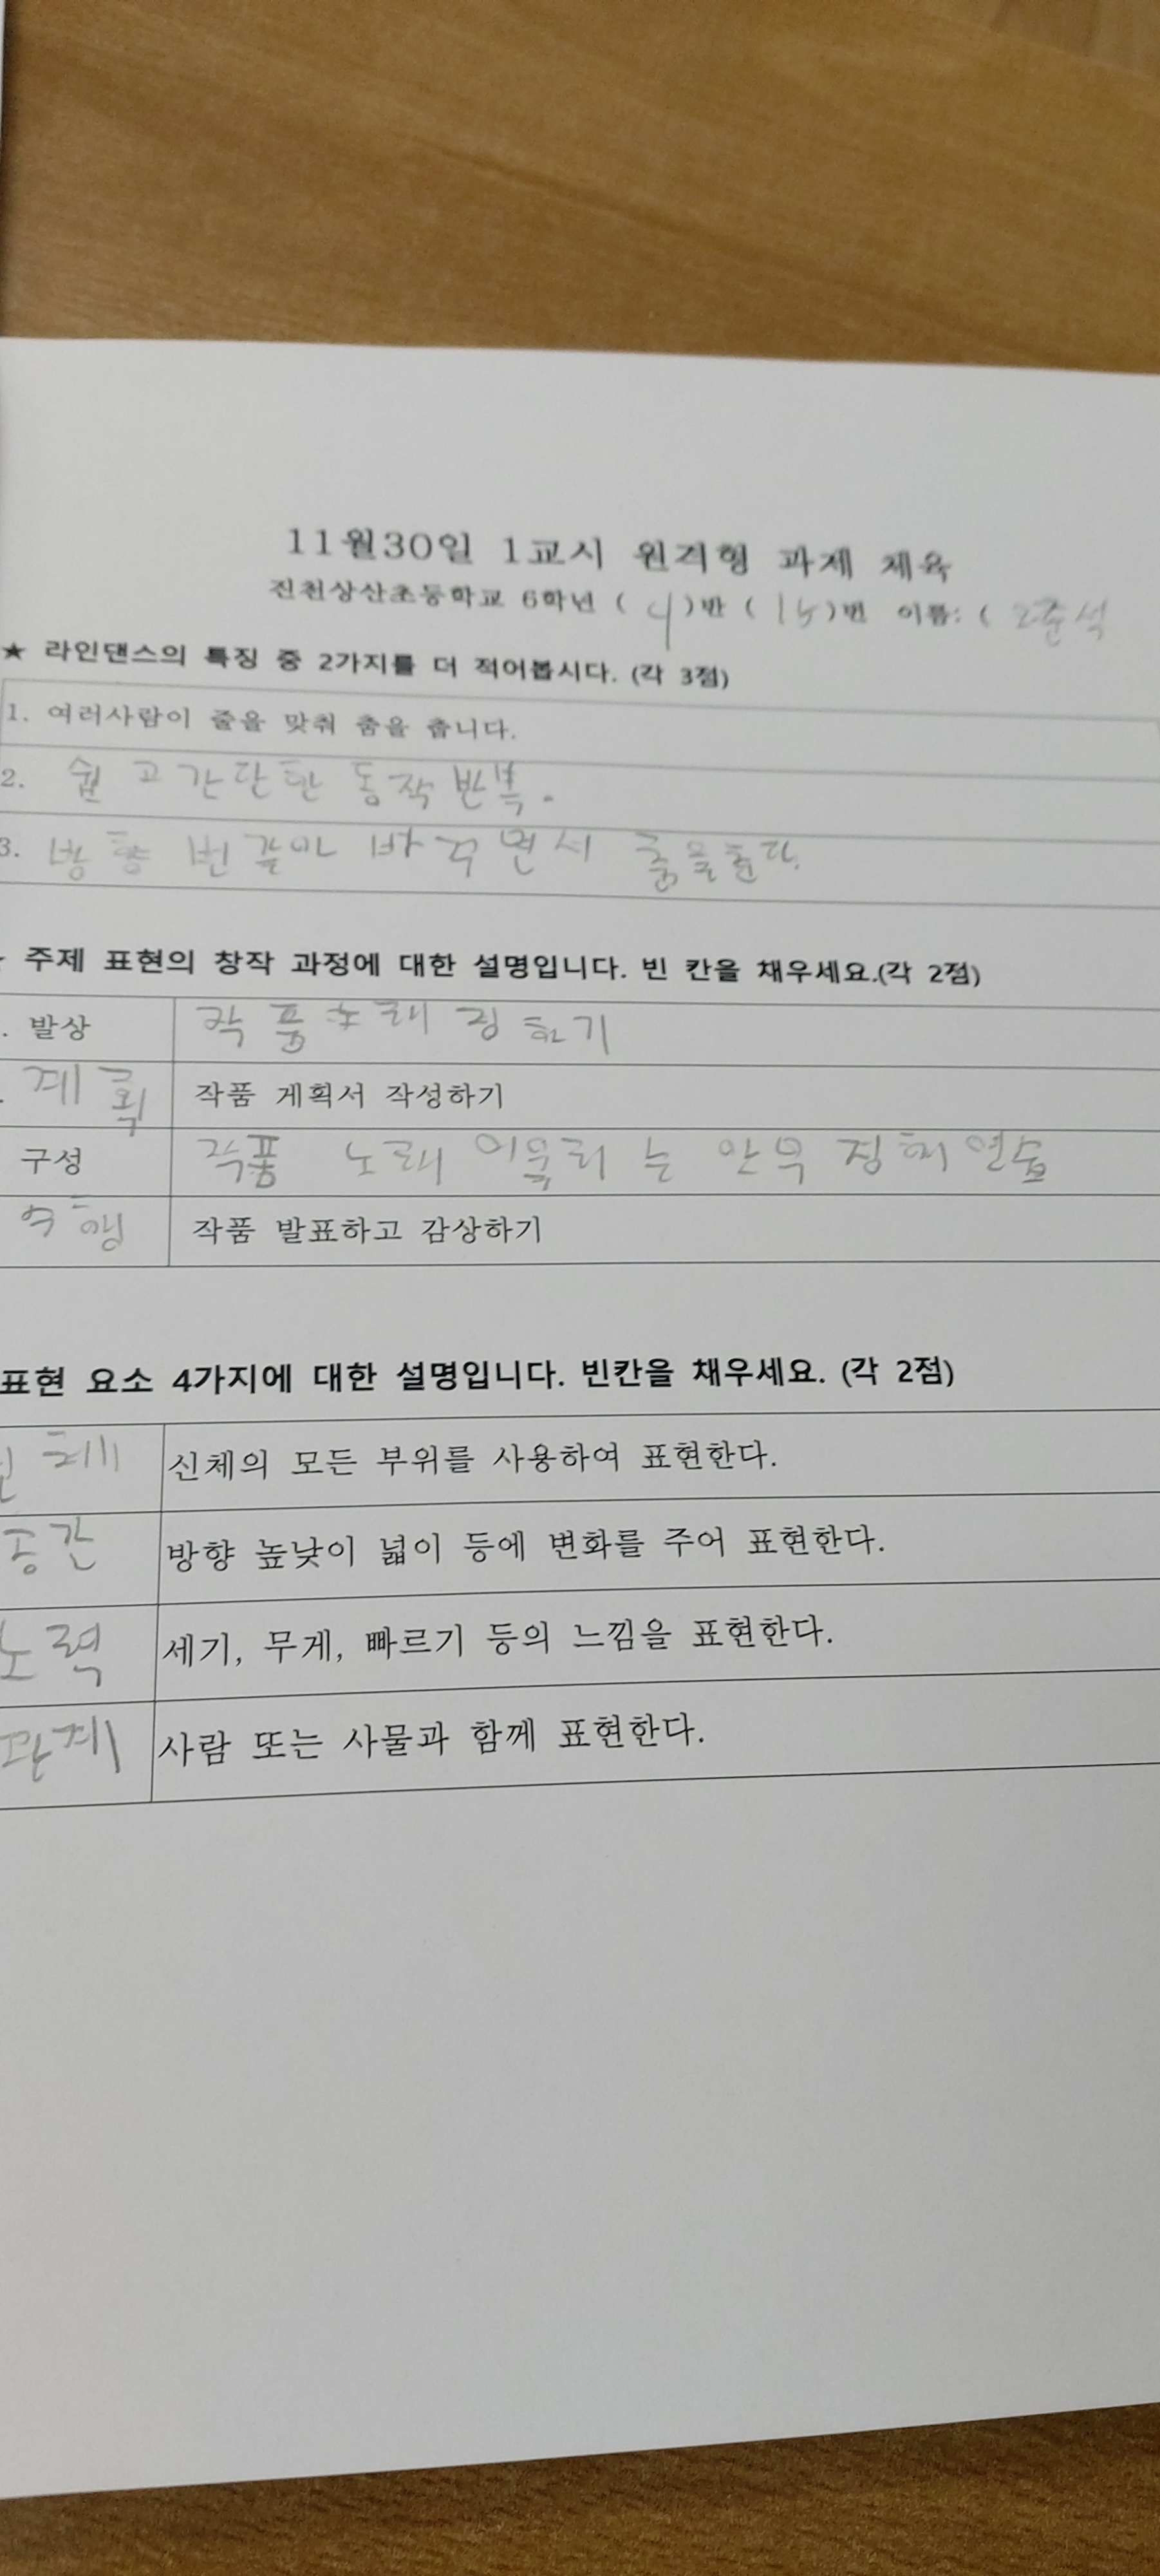 11월30일 1교시 원격형 과제 체육
진천상산초등학교 6학년 ( 4 )반 ( 15 )번 이름: ( 준석
★ 라인댄스의 특징 중 2가지를 더 적어봅시다. (각 3점)
1. 여러사람이 줄을 맞춰 춤을 춥니다.
2. 쉽고 간단한 동작 반복.
3. 방향 바꾸면서 춤을춘다.
주제 표현의 창작 과정에 대한 설명입니다. 빈 칸을 채우세요.(각 2점)
. 발상 작품노래 정하기
계획 작품 계획서 작성하기
구성 작품 노래 어울리는 안무 정해 연습
수행 작품 발표하고 감상하기
표현 요소 4가지에 대한 설명입니다. 빈칸을 채우세요. (각 2점)
신체 신체의 모든 부위를 사용하여 표현한다.
공간 방향 높낮이 넓이 등에 변화를 주어 표현한다.
노력 세기, 무게, 빠르기 등의 느낌을 표현한다.
관계 사람 또는 사물과 함께 표현한다.